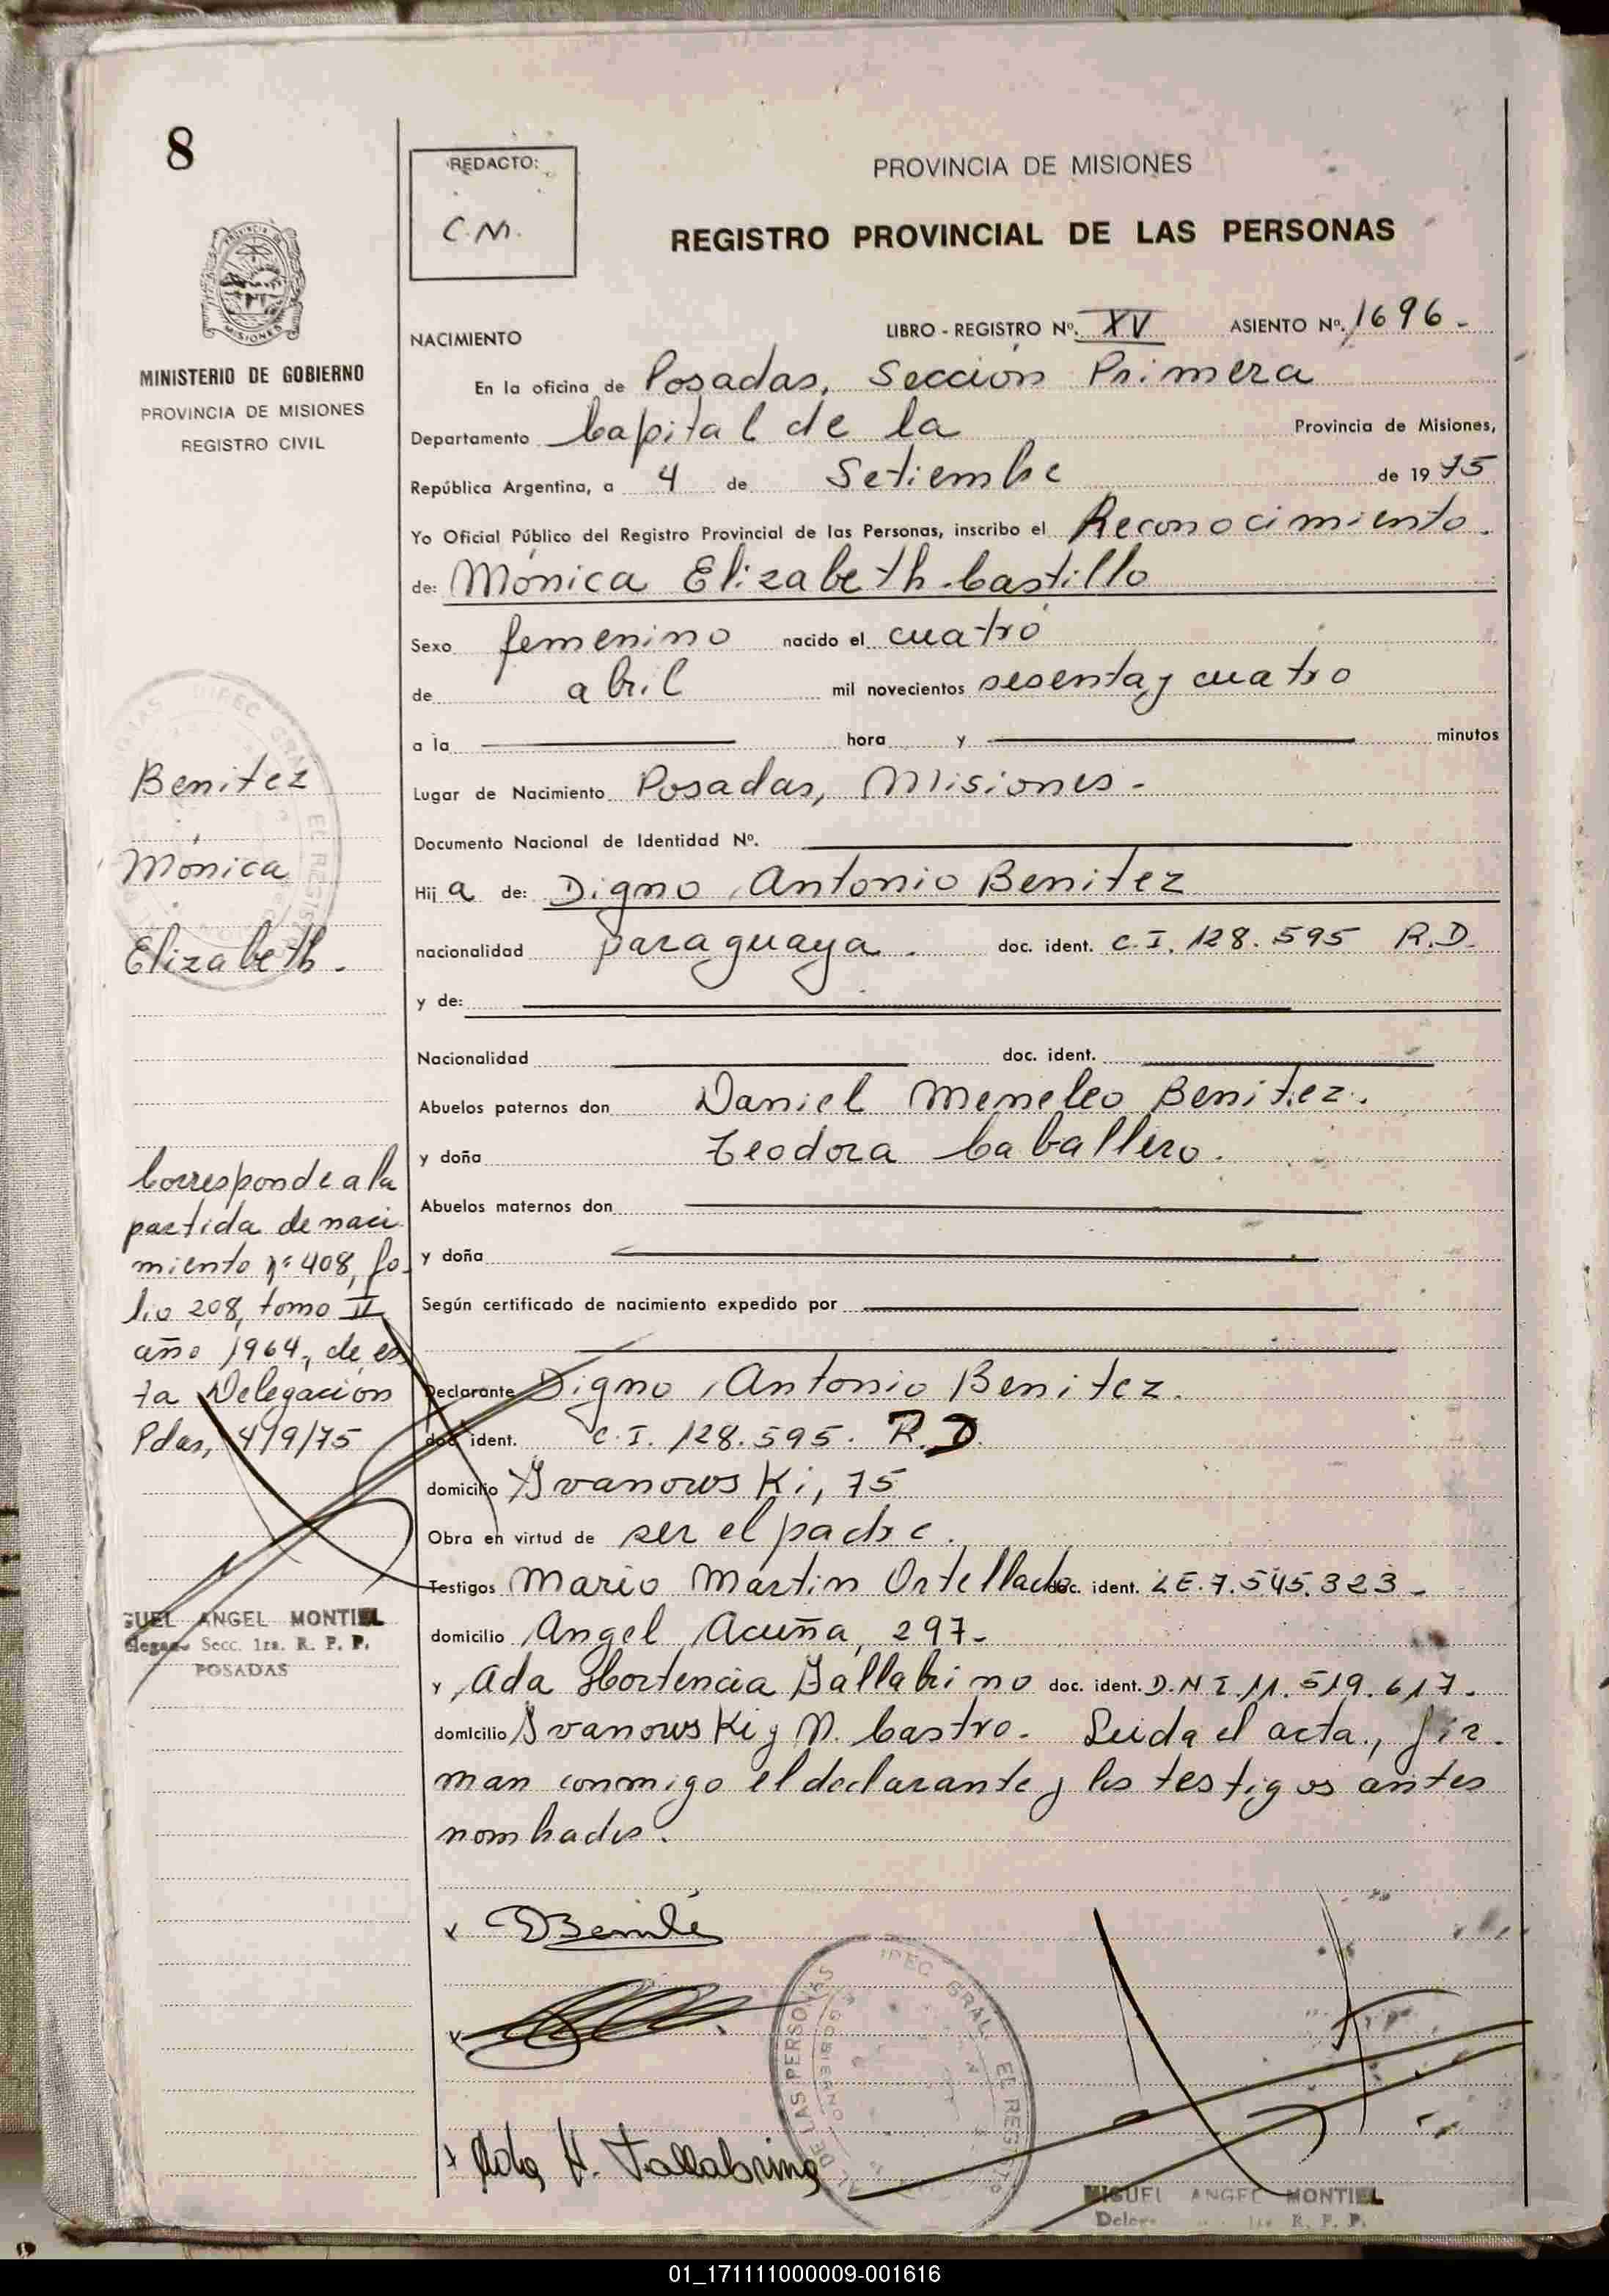 8
REDACTO:
C.M.
PROVINCIA DE MISIONES
REGISTRO PROVINCIAL DE LAS PERSONAS
MISIONES
MINISTERIO DE GOBIERNO
PROVINCIA DE MISIONES
REGISTRO CIVIL
NACIMIENTO
LIBRO - REGISTRO Nº. XV ASIENTO Nº. 1696-
En la oficina de Posadas, Sección Primera
Departamento Capital de la Provincia de Misiones,
República Argentina, a 4 de Setiembre de 1975
Yo Oficial Público del Registro Provincial de las Personas, inscribo el Reconocimiento.
de: Mónica Elizabeth Castillo
Sexo femenino nacido el cuatro
de abril mil novecientos sesenta y cuatro
a la hora y minutos
Lugar de Nacimiento Posadas, Misiones.-
Documento Nacional de Identidad Nº.
Hij a de: Digno Antonio Benitez
nacionalidad paraguaya. doc. ident. C.I. 128.595 R.D.
y de:
Nacionalidad doc. ident.
Abuelos paternos don Daniel Meneleo Benitez.
y doña Teodora Caballero.
Abuelos maternos don
y doña
Según certificado de nacimiento expedido por
Declarante Digno Antonio Benitez.
doc ident. C.I. 128.595. R.D.
domicilio Ivanowski, 75
Obra en virtud de ser el padre.
Testigos Mario Martin Ortellado doc. ident. L.E. 7.545.323-
domicilio Angel Acuña, 297-
y Ada Hortencia Tallabrino doc. ident. D.N.I. 11.519.617.
domicilio Ivanowski y N. Castro- Leida el acta, fir-
man conmigo el declarante y los testigos antes
nombrados.
Benitez
Mónica
Elizabeth.
Corresponde a la
partida de naci-
miento nº 408, fo-
lio 208, tomo II
año 1964, de es
ta Delegación
Pdas, 4/9/75
GUEL ANGEL MONTIEL
Secc. 1ra. R. P. P.
POSADAS
x DBenite
x
x Ada H. Tallabrino
DE LAS PERSONAS GRAL. EL REGISTRO
GOBIERNO
MIGUEL ANGEL MONTIEL
R. P. P.
01_171111000009-001616